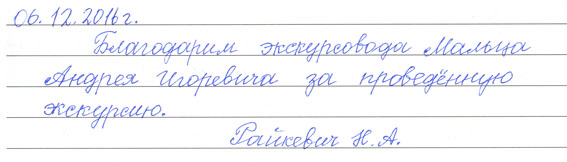 06.12.2016г.
Благодарим экскурсовода Мальца
Андрея Игоревича за проведённую
экскурсию.
Райкевич Н.А.